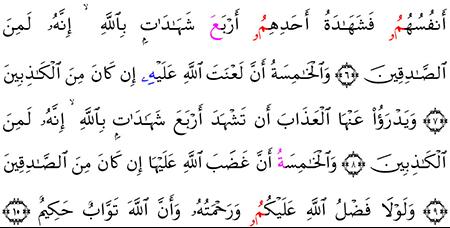 أَنفُسُهُمُۥ فَشَهَٰدَةُ أَحَدِهِمُۥ أَرْبَعَ شَهَٰدَٰتٍۭ بِٱللَّهِ ۙ إِنَّهُۥ لَمِنَ
ٱلصَّٰدِقِينَ ﴿٦﴾ وَٱلْخَٰمِسَةُ أَنَّ لَعْنَتَ ٱللَّهِ عَلَيْهِۦ إِن كَانَ مِنَ ٱلْكَٰذِبِينَ
﴿٧﴾ وَيَدْرَؤُا۟ عَنْهَا ٱلْعَذَابَ أَن تَشْهَدَ أَرْبَعَ شَهَٰدَٰتٍۭ بِٱللَّهِ ۙ إِنَّهُۥ لَمِنَ
ٱلْكَٰذِبِينَ ﴿٨﴾ وَٱلْخَٰمِسَةُ أَنَّ غَضَبَ ٱللَّهِ عَلَيْهَا إِن كَانَ مِنَ ٱلصَّٰدِقِينَ
﴿٩﴾ وَلَوْلَا فَضْلُ ٱللَّهِ عَلَيْكُمُۥ وَرَحْمَتُهُۥ وَأَنَّ ٱللَّهَ تَوَّابٌ حَكِيمٌ ﴿١٠﴾